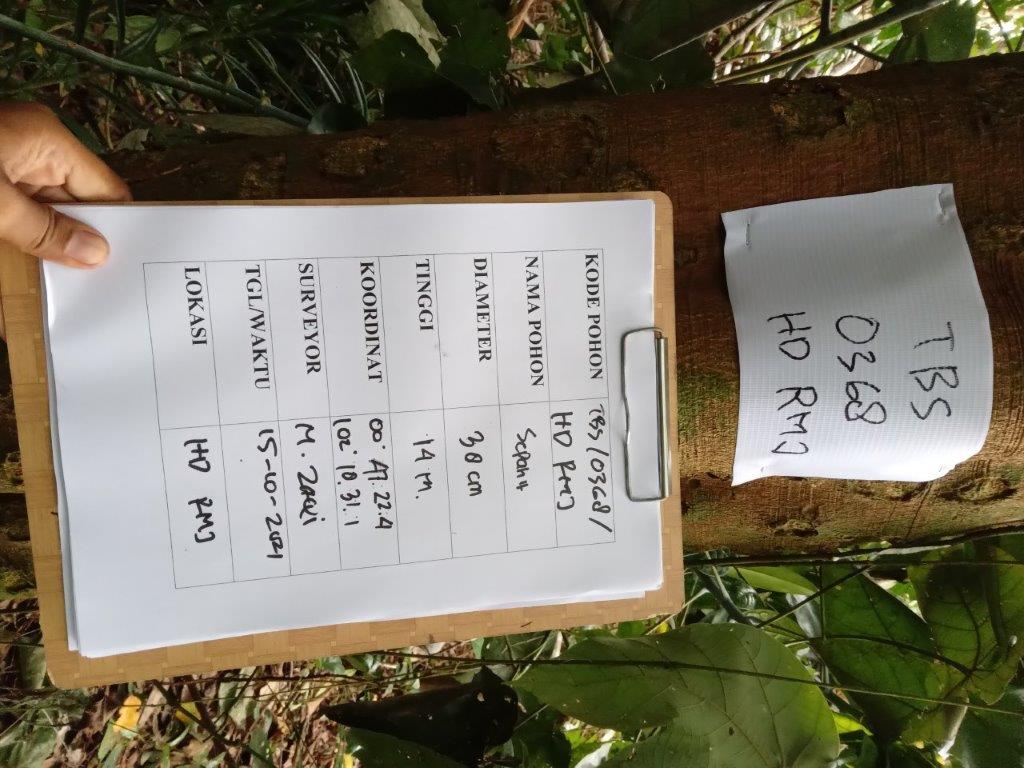 TBS
0368
HD RMJ
KODE POHON TBS/0368/
HD RMJ
NAMA POHON
DIAMETER 38 cm
TINGGI 14 M.
KOORDINAT 00° 47. 22.4
102° 10. 31. 1
SURVEYOR M. Zaki
TGL/WAKTU 15-10-2021
LOKASI HD RMJ